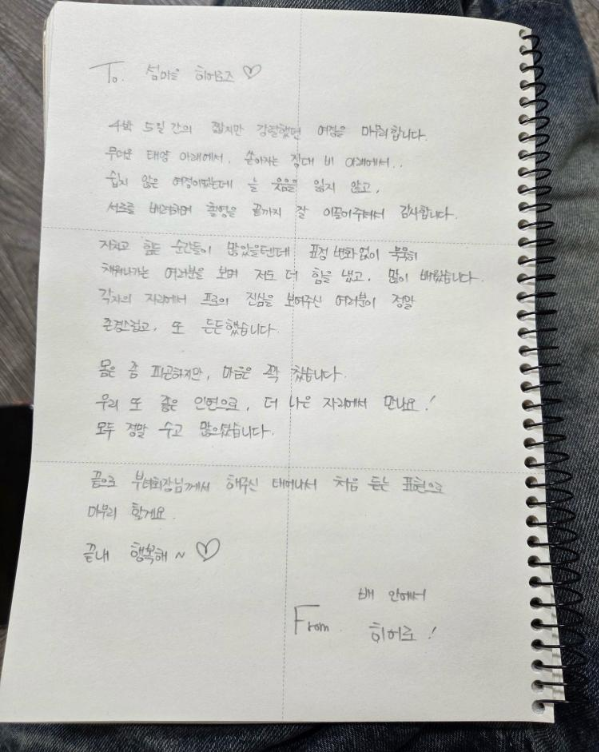 To. 섬마을 히어로즈 ♡
4박 5일간의 짧지만 강렬했던 여정을 마무리합니다.
무더운 태양 아래에서, 쏟아지는 장대 비 아래에서..
쉽지 않은 여정이었는데 늘 웃음을 잃지 않고,
서로를 배려하며 촬영을 끝까지 잘 이끌어주셔서 감사합니다.
지치고 힘든 순간들이 많았을텐데 표정 변화 없이 묵묵히
채워나가는 여러분을 보며 저도 더 힘을 내고, 많이 배웠습니다.
각자의 자리에서 프로의 진심을 보여주신 여러분이 정말
존경스럽고, 또 든든했습니다.
몸은 좀 피곤하지만, 마음은 꽉 찼습니다.
우리 또 좋은 인연으로, 더 나은 자리에서 만나요!
모두 정말 수고 많으셨습니다.
끝으로 부녀회장님께서 해주신 태어나서 처음 듣는 표현으로
마무리 할게요.
끝내 행복해~ ♡
배 안에서
From. 히어로!